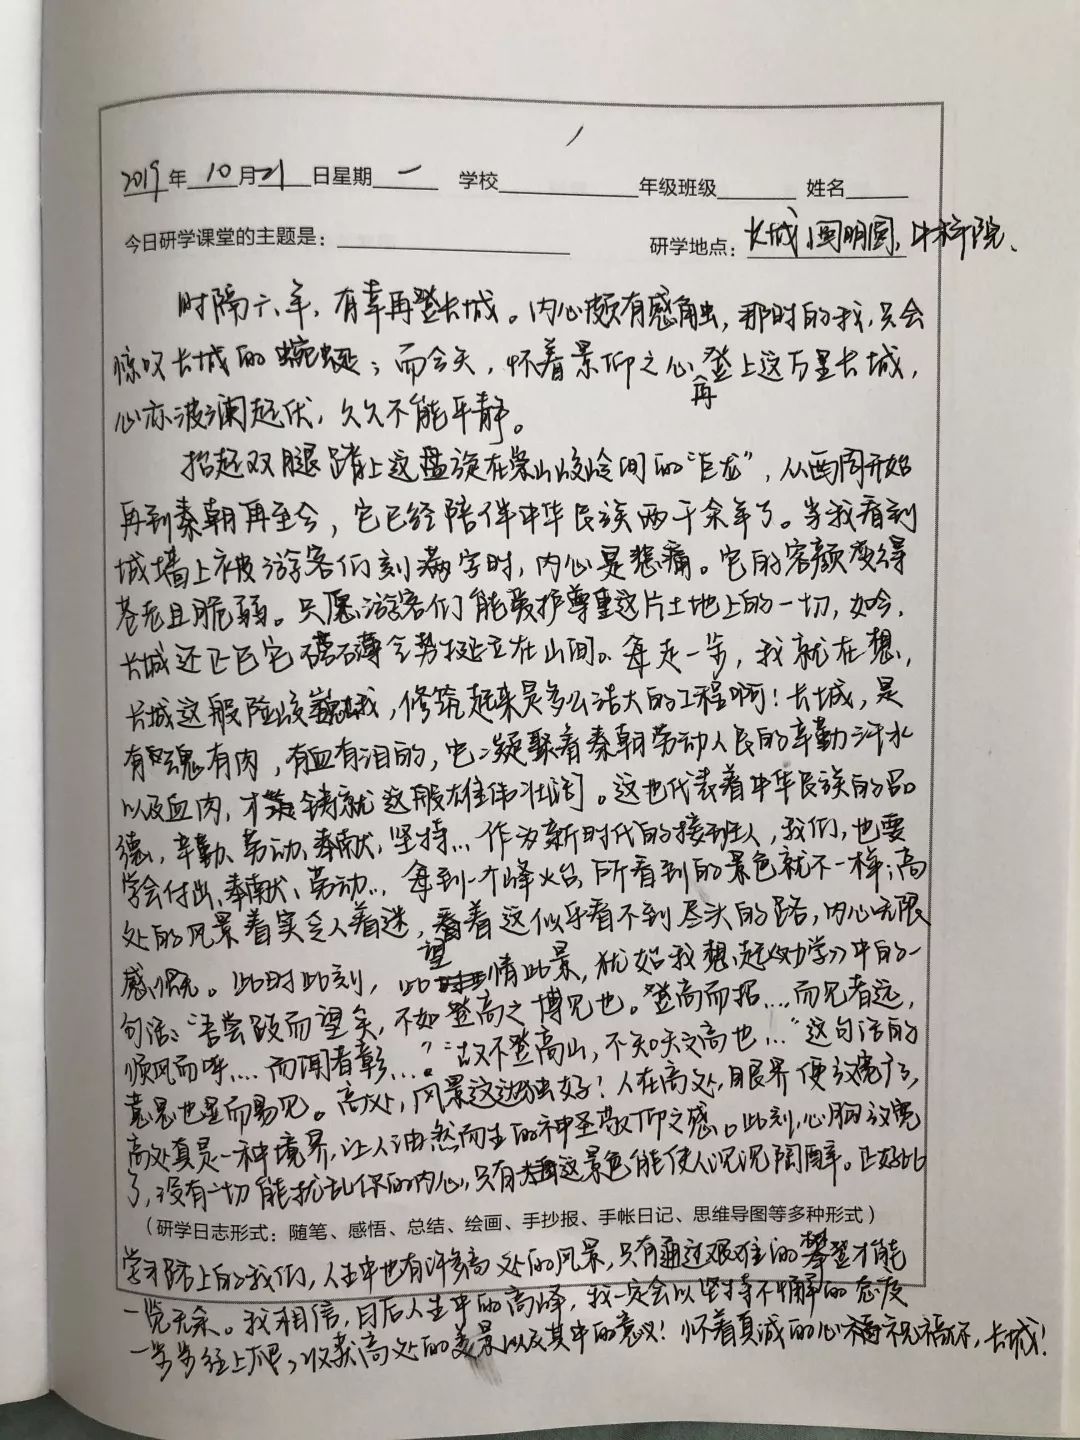 2019年10月21日星期一 学校 年级班级 姓名
今日研学课堂的主题是： 研学地点：长城、圆明园、中科院、
时隔六年，有幸再登长城。内心颇有感触，那时的我，只会
惊叹长城的蜿蜒；而今天，怀着景仰之心再登上这万里长城，
心亦波澜起伏，久久不能平静。
抬起双腿踏上这盘旋在崇山峻岭间的“巨龙”，从西周开始
再到秦朝再至今，它已经陪伴中华民族两千余年了。当我看到
城墙上被游客们刻满字时，内心是悲痛。它的容颜变得
苍老且脆弱。只愿游客们能爱护尊重这片土地上的一切，如今，
长城还正已它磅礴气势挺立在山间。每走一步，我就在想，
长城这般险峻巍峨，修筑起来是多么浩大的工程啊！长城，是
有灵魂有肉，有血有泪的，它凝聚着秦朝劳动人民的辛勤汗水
以及血肉，才铸就这般雄伟壮阔。这也代表着中华民族的品
德，辛勤、劳动、奉献、坚持…作为新时代的接班人，我们，也要
学会付出、奉献、劳动…每到一个峰火台，所看到的景色就不一样；高
处的风景着实令人着迷，望着这似乎看不到尽头的路，内心无限
感慨。此时此刻，此情此景，犹如我想起《劝学》中的一
句话：“吾尝跂而望矣，不如登高之博见也。登高而招…而见者远，
顺风而呼…而闻者彰…”“故不登高山，不知天之高也…”这句话的
意思也显而易见。高处，风景这边独好！人在高处，眼界便放宽了，
高处真是一种境界，让人油然而生的神圣敬仰之感。此刻，心胸放宽
了，没有一切能扰乱你的内心，只有这景色能使人沉沉陶醉。正好比
（研学日志形式：随笔、感悟、总结、绘画、手抄报、手帐日记、思维导图等多种形式）
学习路上的我们，人生中也有许多高处的风景，只有通过艰难的攀登才能
一览无余。我相信，日后人生中的高峰，我一定会以坚持不懈的态度
一步步往上爬，收获高处的美景以及其中的意义！怀着真诚的心祝福你，长城！